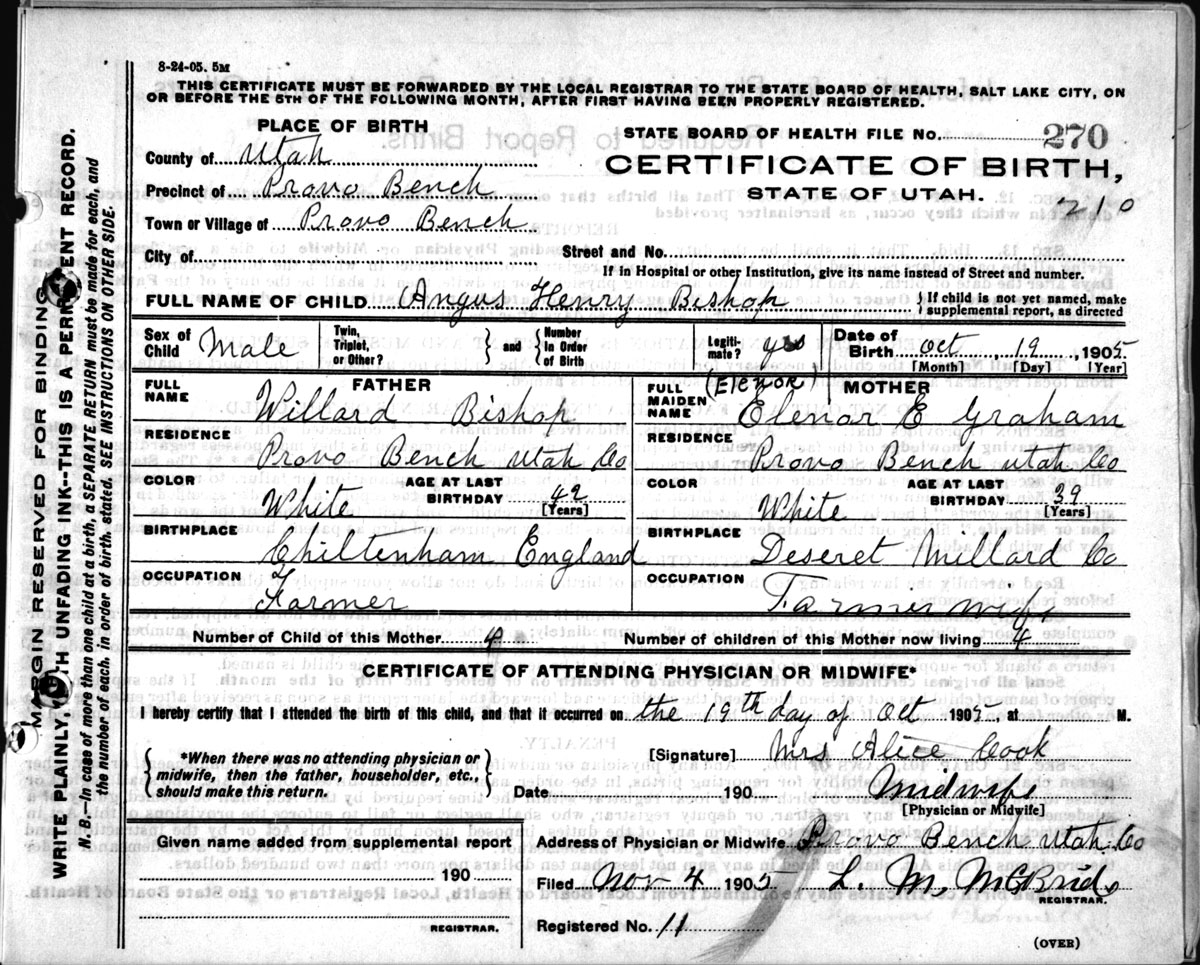 8-24-05. 5M
THIS CERTIFICATE MUST BE FORWARDED BY THE LOCAL REGISTRAR TO THE STATE BOARD OF HEALTH, SALT LAKE CITY, ON
OR BEFORE THE 5TH OF THE FOLLOWING MONTH, AFTER FIRST HAVING BEEN PROPERLY REGISTERED.
PLACE OF BIRTH
STATE BOARD OF HEALTH FILE No. 270
County of Utah
CERTIFICATE OF BIRTH,
Precinct of Provo Bench
STATE OF UTAH.
210
Town or Village of Provo Bench
City of
Street and No.
If in Hospital or other Institution, give its name instead of Street and number.
FULL NAME OF CHILD. Angus Henry Bishop
If child is not yet named, make
supplemental report, as directed
Sex of Child Male Twin, Triplet, or Other? and Number In Order of Birth Legiti-mate? yes Date of Birth Oct 19, 1905
[Month] [Day] [Year]
FATHER
(Elenor) MOTHER
FULL NAME Willard Bishop
FULL MAIDEN NAME Elenor E Graham
RESIDENCE Provo Bench Utah Co
RESIDENCE Provo Bench Utah Co
COLOR White AGE AT LAST BIRTHDAY 42 [Years]
COLOR White AGE AT LAST BIRTHDAY 39 [Years]
BIRTHPLACE Chiltenham England
BIRTHPLACE Deseret Millard Co
OCCUPATION Farmer
OCCUPATION Farmer wife
Number of Child of this Mother 4 Number of children of this Mother now living 4
CERTIFICATE OF ATTENDING PHYSICIAN OR MIDWIFE*
I hereby certify that I attended the birth of this child, and that it occurred on the 19th day of Oct 1905, at M.
*When there was no attending physician or
midwife, then the father, householder, etc.,
should make this return.
[Signature] Mrs Alice Cook
Date 190 Midwife
[Physician or Midwife]
Given name added from supplemental report
190
REGISTRAR.
Address of Physician or Midwife Provo Bench Utah Co
Filed Nov 4 1905 L. M. McBride
REGISTRAR.
Registered No. 11
(OVER)
MARGIN RESERVED FOR BINDING
WRITE PLAINLY, WITH UNFADING INK--THIS IS A PERMANENT RECORD.
N. B.--In case of more than one child at a birth, a SEPARATE RETURN must be made for each, and
the number of each, in order of birth, stated. SEE INSTRUCTIONS ON OTHER SIDE.